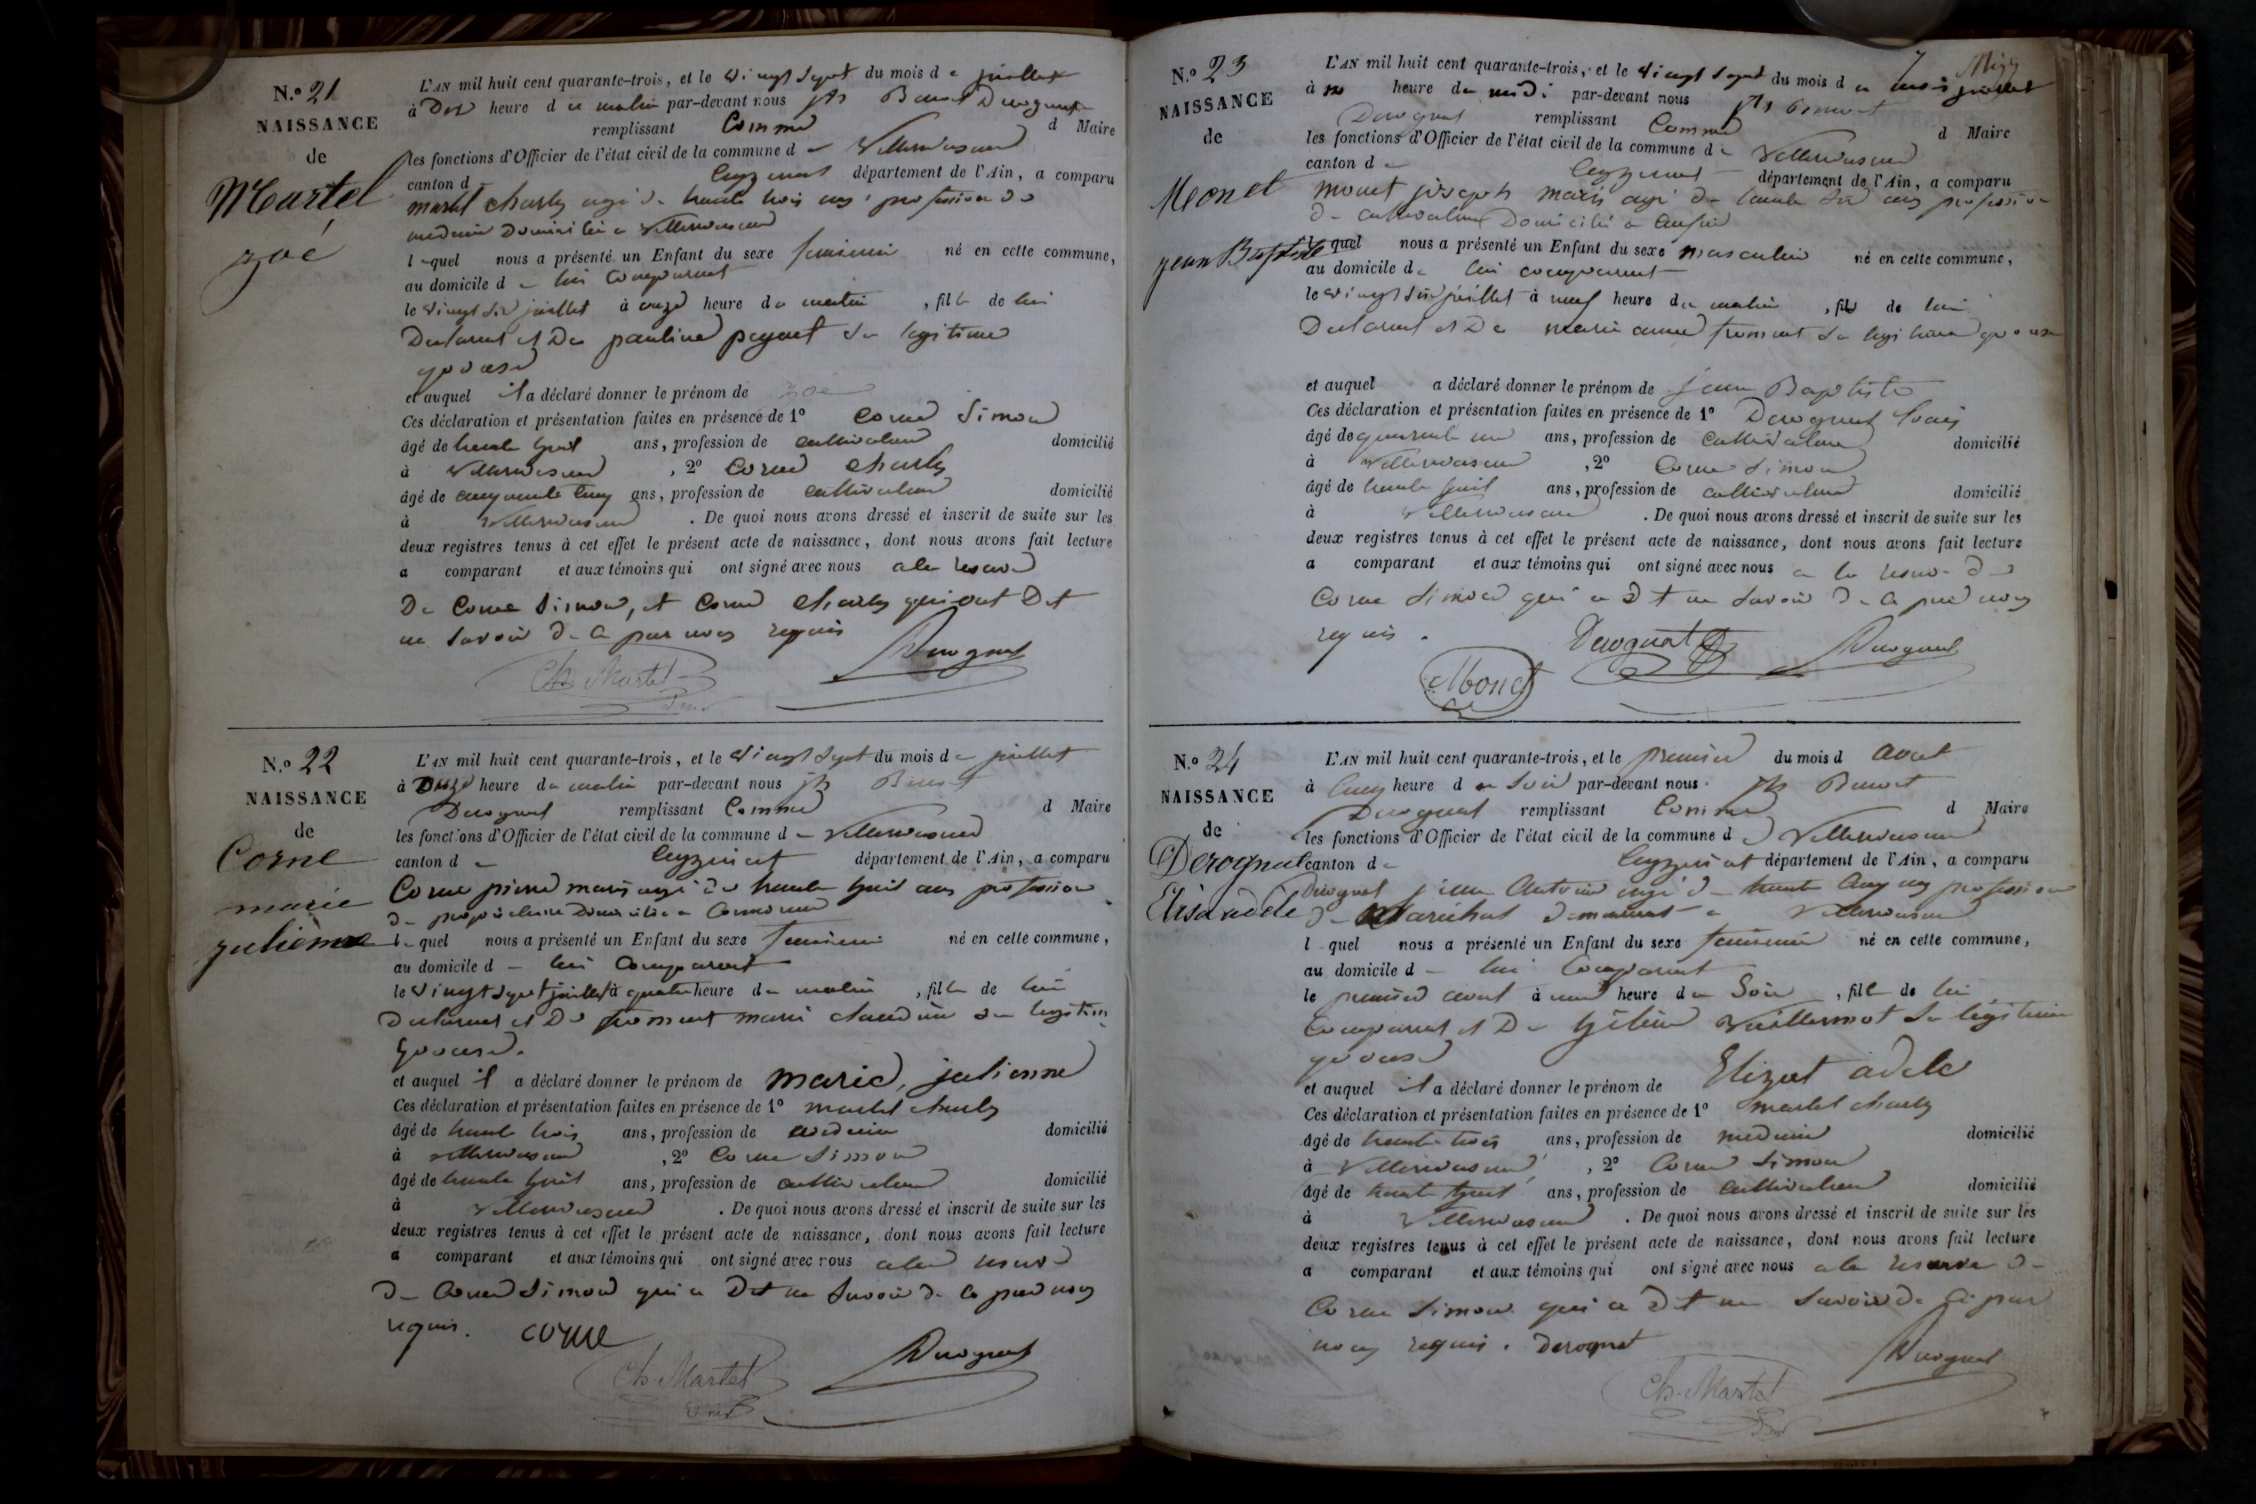 N.º 21
NAISSANCE
de
Martel
zoé
L'AN mil huit cent quarante-trois, et le vingt sept du mois de juillet
à Dix heure du matin par-devant nous Derognat
remplissant Comme d Maire
les fonctions d'Officier de l'état civil de la commune de Villereversure
canton d Ceyzeriat département de l'Ain, a comparu
martel charles agé de trente trois ans, profession de
medecin Domicilié a Villereversure
lequel nous a présenté un Enfant du sexe feminin né en cette commune,
au domicile de lui Comparant
le vingt six juillet à onze heure du matin, fille de lui
Declarant et De pauline sa legitime
epouse
et auquel il a déclaré donner le prénom de zoé
Ces déclaration et présentation faites en présence de 1º Corne Simon
âgé de trente huit ans, profession de cultivateur domicilié
à Villereversure, 2º Corne charles
âgé de cinquante cinq ans, profession de cultivateur domicilié
à Villereversure. De quoi nous avons dressé et inscrit de suite sur les
deux registres tenus à cet effet le présent acte de naissance, dont nous avons fait lecture
a comparant et aux témoins qui ont signé avec nous a la reserve
De Corne Simon, et Corne charles qui ont Dit
ne savoir de ce par nous requis
Derognat
Ch. Martel
N.º 22
NAISSANCE
de
Corne
marie
julienne
L'AN mil huit cent quarante-trois, et le vingt sept du mois de juillet
à onze heure du matin par-devant nous
Derognat remplissant Comme d Maire
les fonctions d'Officier de l'état civil de la commune de Villereversure
canton de Ceyzeriat département de l'Ain, a comparu
Corne pierre marie agé de trente huit ans profession
de proprietaire Domicilié a
lequel nous a présenté un Enfant du sexe feminin né en cette commune,
au domicile de lui Comparant
le vingt sept juillet à quatre heure du matin, fille de lui
Declarant et De froment marie claudine sa legitime
Epouse.
et auquel il a déclaré donner le prénom de marie, julienne
Ces déclaration et présentation faites en présence de 1º martel charles
âgé de trente trois ans, profession de medecin domicilié
à Villereversure, 2º Corne Simon
âgé de trente huit ans, profession de cultivateur domicilié
à Villereversure. De quoi nous avons dressé et inscrit de suite sur les
deux registres tenus à cet effet le présent acte de naissance, dont nous avons fait lecture
a comparant et aux témoins qui ont signé avec nous a la reserve
de Corne Simon qui a Dit ne Savoir de ce par nous
requis. corne
Derognat
Ch. Martel
7
N.º 23
NAISSANCE
de
Monet
jean Baptiste
L'AN mil huit cent quarante-trois, et le vingt sept du mois de juillet
à heure de midi par-devant nous
Derognat remplissant Comme d Maire
les fonctions d'Officier de l'état civil de la commune de Villereversure
canton de Ceyzeriat département de l'Ain, a comparu
monet joseph marie agé de trente six ans profession
de cultivateur Domicilié a
lequel nous a présenté un Enfant du sexe masculin né en cette commune,
au domicile de lui comparant
le vingt six juillet à neuf heure du matin, fils de lui
Declarant et De marie anne froment sa legitime epouse
et auquel a déclaré donner le prénom de jean Baptiste
Ces déclaration et présentation faites en présence de 1º Derognat
âgé de quarante un ans, profession de Cultivateur domicilié
à Villereversure, 2º Corne Simon
âgé de trente huit ans, profession de cultivateur domicilié
à Villereversure. De quoi nous avons dressé et inscrit de suite sur les
deux registres tenus à cet effet le présent acte de naissance, dont nous avons fait lecture
a comparant et aux témoins qui ont signé avec nous a la reserve de
Corne Simon qui a Dit ne Savoir De ce par nous
requis.
Derognat Derognat
Monet
N.º 24
NAISSANCE
de
Derognat
Elisa adele
L'AN mil huit cent quarante-trois, et le premier du mois d aout
à Cinq heure du Soir par-devant nous Benoit
Derognat remplissant Comme d Maire
les fonctions d'Officier de l'état civil de la commune de Villereversure
canton de Ceyzeriat département de l'Ain, a comparu
Derognat jean Antoine agé de trente Cinq ans profession
de Maréchal demeurant a Villereversure
lequel nous a présenté un Enfant du sexe feminin né en cette commune,
au domicile de lui Comparant
le premier aout à une heure du Soir, fille de lui
Comparant et De Vuillermot Sa légitime
epouse
et auquel il a déclaré donner le prénom de Elizat adele
Ces déclaration et présentation faites en présence de 1º martel charles
âgé de trente trois ans, profession de medecin domicilié
à Villereversure, 2º Corne Simon
âgé de trente huit ans, profession de Cultivateur domicilié
à Villereversure. De quoi nous avons dressé et inscrit de suite sur les
deux registres tenus à cet effet le présent acte de naissance, dont nous avons fait lecture
a comparant et aux témoins qui ont signé avec nous a la reserve de
Corne Simon qui a Dit ne Savoir de ce par
nous requis. Derognat
Derognat
Ch. Martel